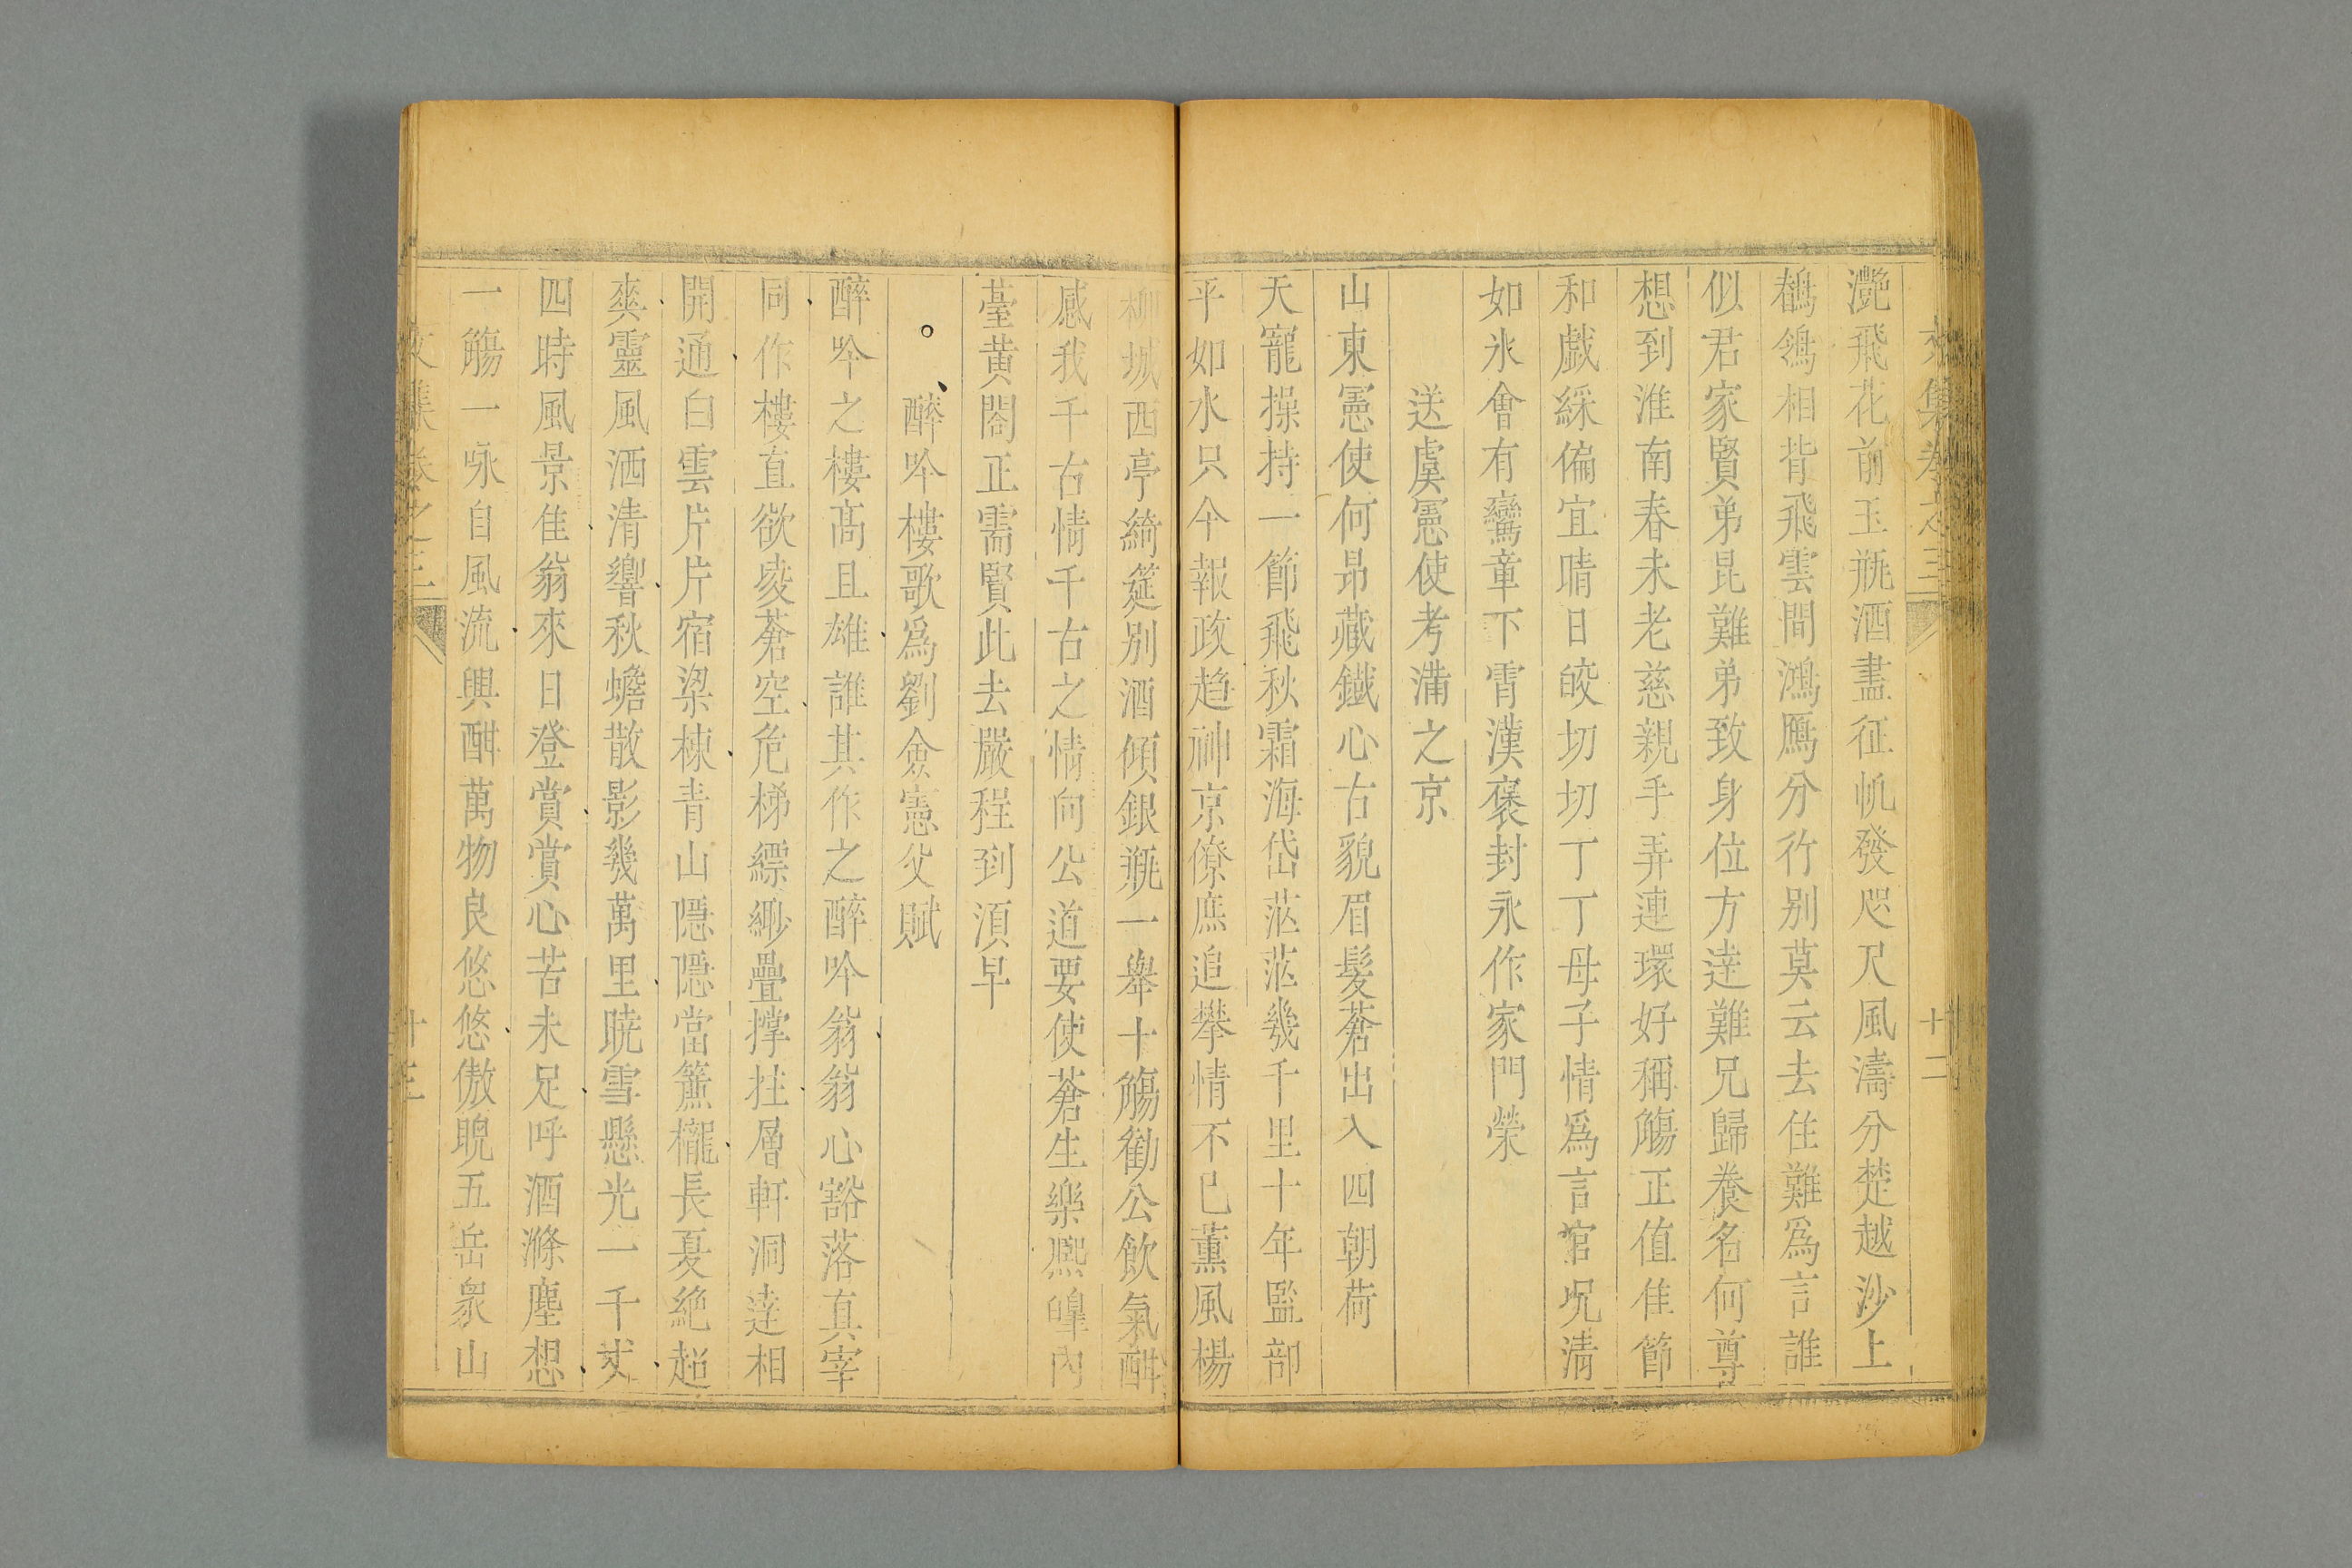 文集卷之三 十二
灔飛花前玉瓶酒盡征帆發咫尺風濤分楚越沙上
鶺鴒相背飛雲間鴻鴈分行别莫云去住難爲言誰
似君家賢弟昆難弟致身位方逹難兄歸養名何尊
想到淮南春未老慈親手弄連環好稱觴正值佳節
和戯綵偏宜晴日皎切切丁丁母子情爲言官况清
如氷會有鸞章下霄漢褒封永作家門榮
送虞憲使考滿之京
山東憲使何昂藏鐡心古貌眉髮蒼出入四朝荷
天寵操持一節飛秋霜海岱茫茫幾千里十年監部
平如水只今報政趋神京僚庶追攀情不已薰風楊
柳城西亭綺筵别酒傾銀瓶一舉十觴勸公飲氣酣
感我千古情千古之情向公道要使蒼生樂熈皡内
䑓黄閤正需賢此去嚴程到湏早
醉吟樓歌爲劉僉憲父賦
醉吟之樓髙且雄誰其作之醉吟翁翁心豁落真宰
同作樓直欲凌蒼空危梯縹緲疊撑拄層軒洞逹相
開通白雲片片宿梁棟青山隱隱當簾櫳長夏絶超
爽靈風洒清響秋蟾散影幾萬里暁雪懸光一千丈
四時風景佳翁來日登賞賞心苦未足呼酒滌塵想
一觴一咏自風流興酣萬物良悠悠傲睨五岳衆山
文集卷之三 十三